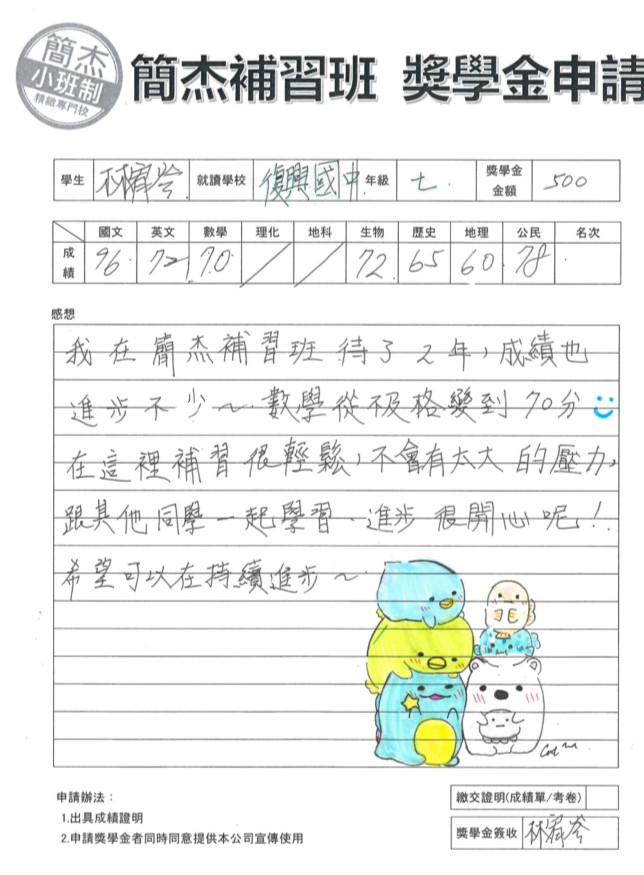 簡杰
小班制
精緻專門校
簡杰補習班 獎學金申請
學生 林宥岑 就讀學校 復興國中 年級 七 獎學金金額 500
國文 英文 數學 理化 地科 生物 歷史 地理 公民 名次
成績 96 72 70 / / 72 65 60 78
感想
我在簡杰補習班待了2年,成績也
進步不少~數學從不及格變到70分
在這裡補習很輕鬆,不會有太大的壓力,
跟其他同學一起學習、進步很開心呢!
希望可以在持續進步~
申請辦法:
1.出具成績證明
2.申請獎學金者同時同意提供本公司宣傳使用
繳交證明(成績單/考卷)
獎學金簽收 林宥岑